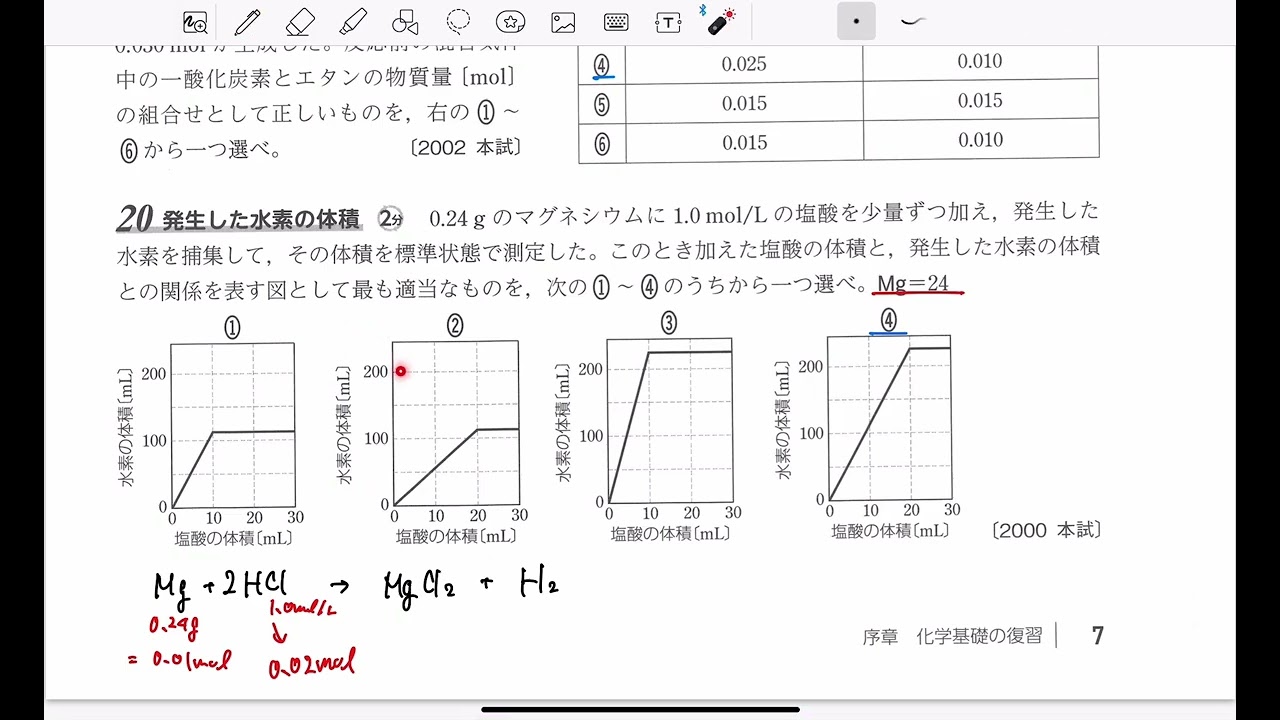 0.030 mol が生成した。反応前の混合気体
中の一酸化炭素とエタンの物質量〔mol〕
の組合せとして正しいものを，右の①～
⑥から一つ選べ。 〔2002 本試〕
④ 0.025 0.010
⑤ 0.015 0.015
⑥ 0.015 0.010
20 発生した水素の体積 2分 0.24 g のマグネシウムに 1.0 mol/L の塩酸を少量ずつ加え，発生した
水素を捕集して，その体積を標準状態で測定した。このとき加えた塩酸の体積と，発生した水素の体積
との関係を表す図として最も適当なものを，次の①～④のうちから一つ選べ。Mg＝24
①
水素の体積〔mL〕
200
100
0
0 10 20 30
塩酸の体積〔mL〕
②
水素の体積〔mL〕
200
100
0
0 10 20 30
塩酸の体積〔mL〕
③
水素の体積〔mL〕
200
100
0
0 10 20 30
塩酸の体積〔mL〕
④
水素の体積〔mL〕
200
100
0
0 10 20 30
塩酸の体積〔mL〕
〔2000 本試〕
Mg + 2HCl → MgCl2 + H2
0.24g 1.0mol/L
= 0.01mol 0.02mol
序章 化学基礎の復習 7